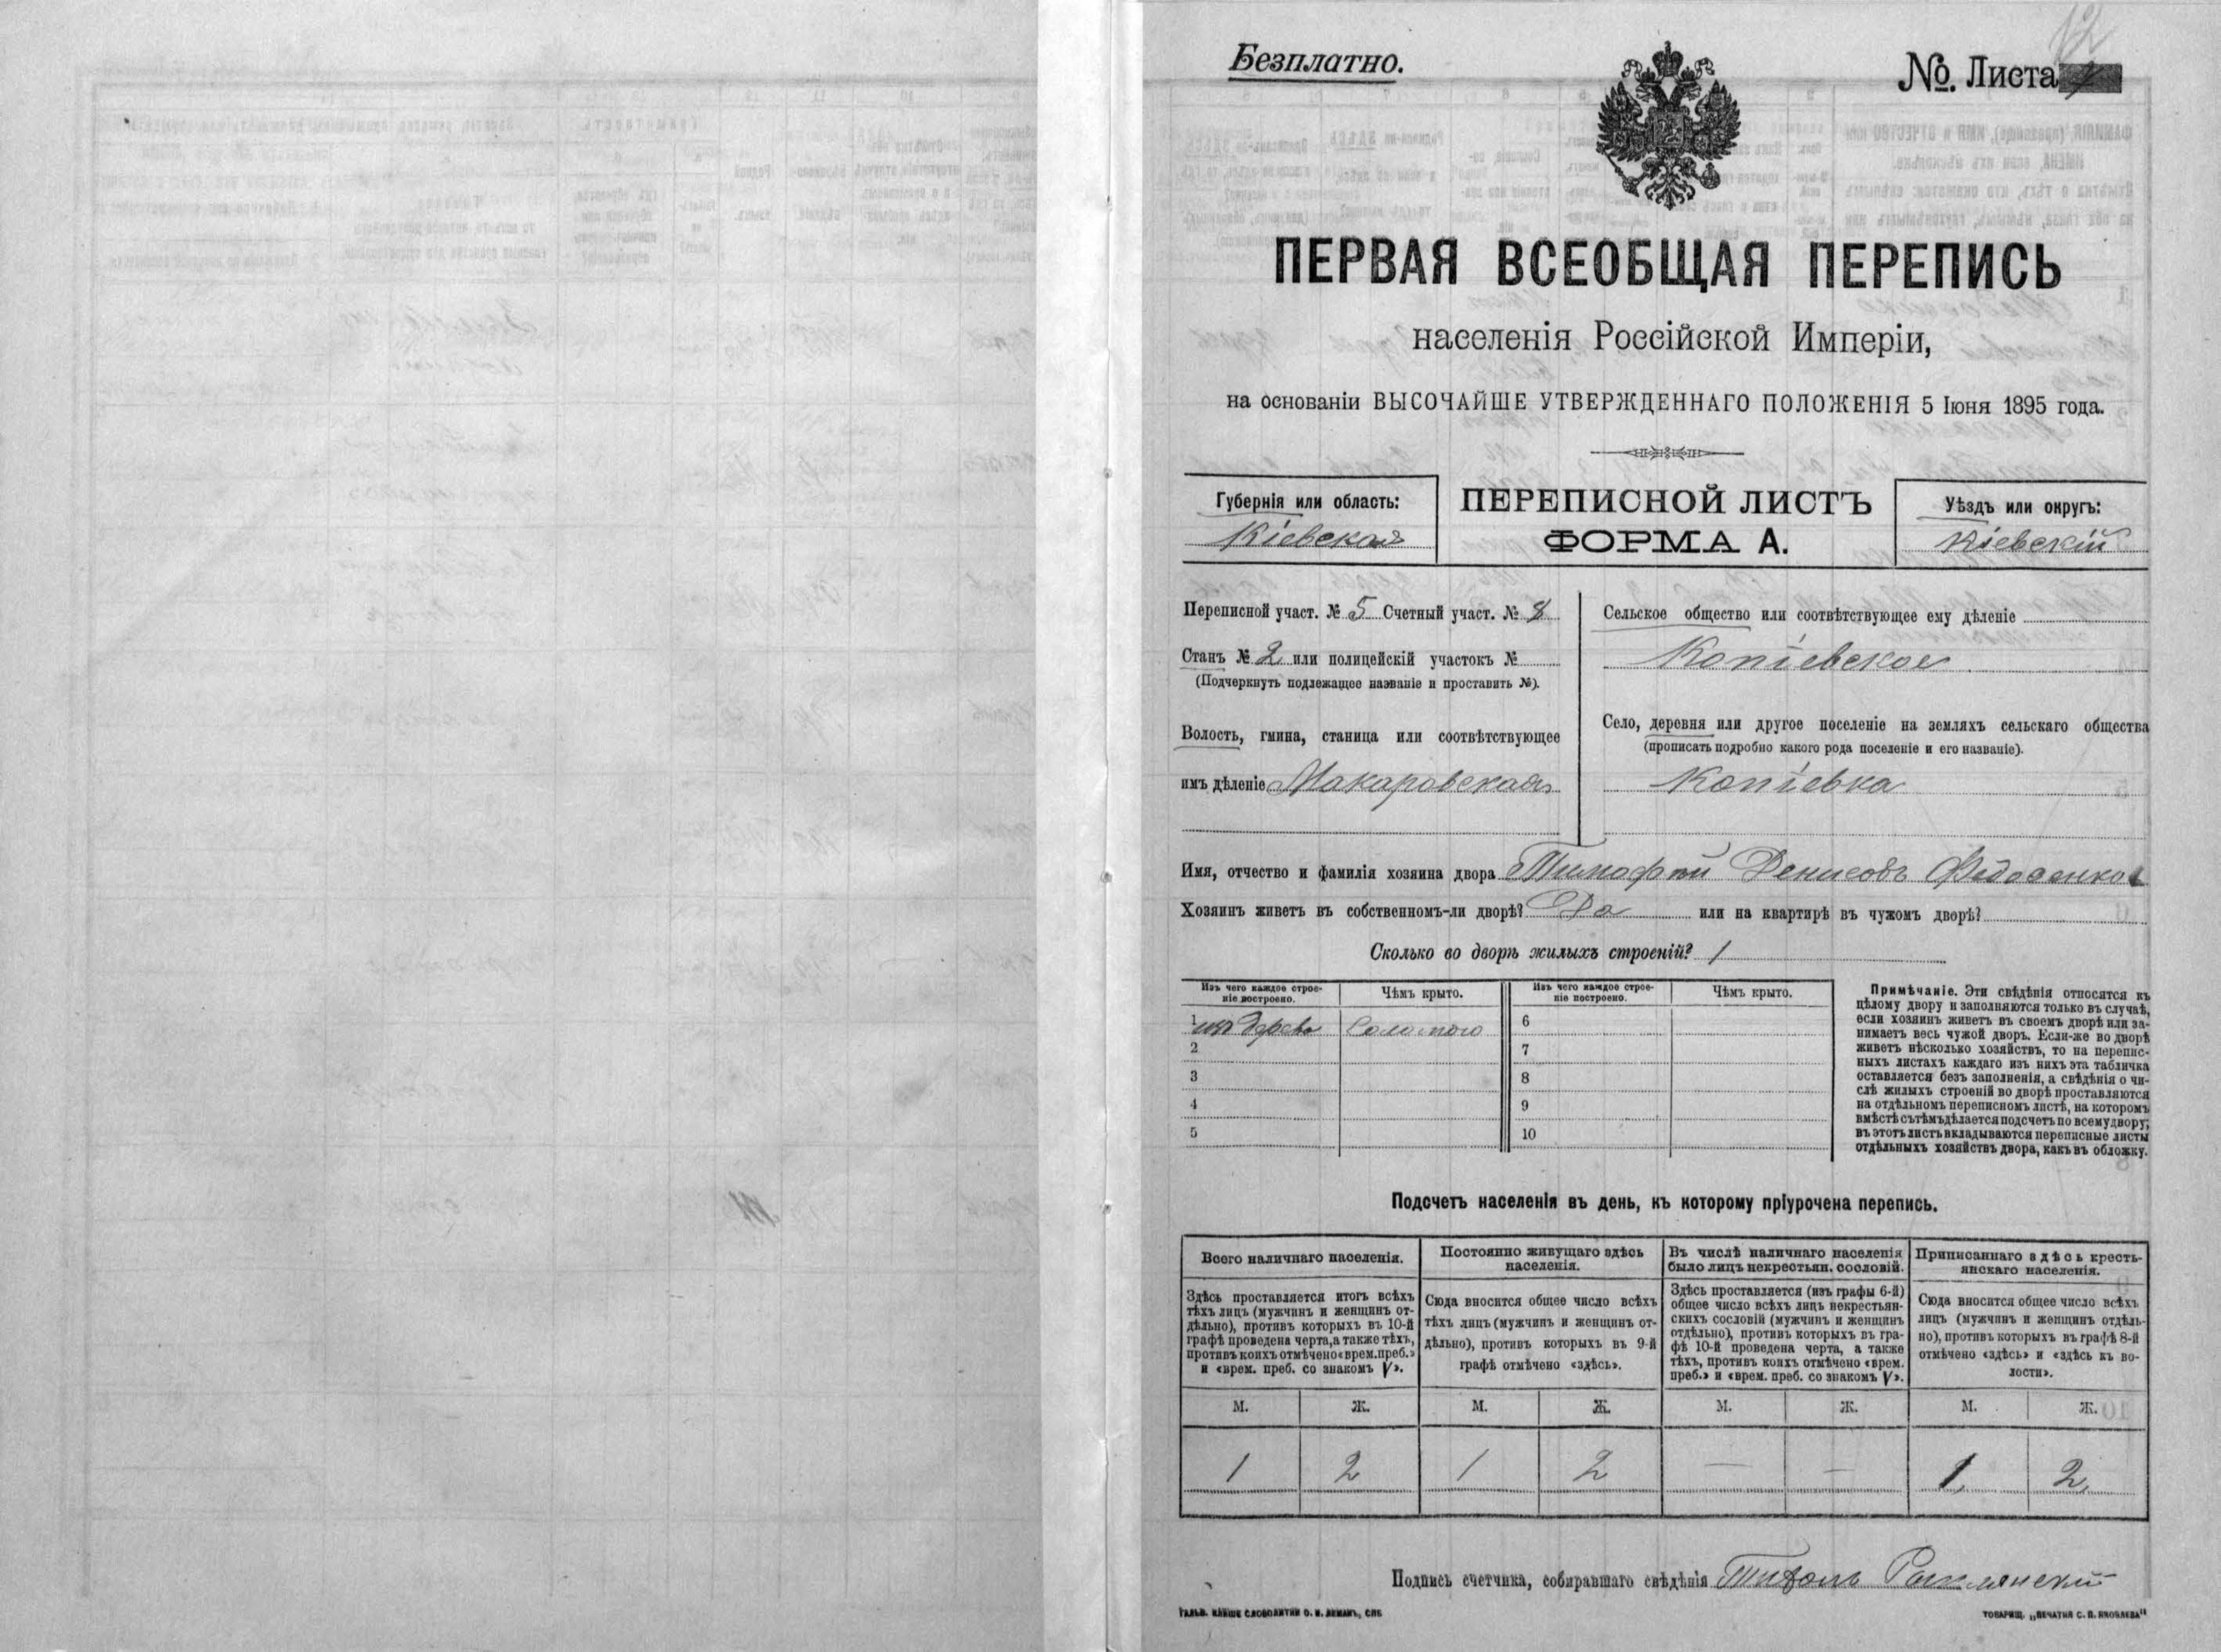 12
Безплатно.
№. Листа
ПЕРВАЯ ВСЕОБЩАЯ ПЕРЕПИСЬ
населенія Россійской Имперіи,
на основаніи ВЫСОЧАЙШЕ УТВЕРЖДЕННАГО ПОЛОЖЕНІЯ 5 Іюня 1895 года.
Губернія или область:
Кіевская
ПЕРЕПИСНОЙ ЛИСТЪ
ФОРМА А.
Уѣздъ или округъ:
Кіевскій
Переписной участ. № 5 Счетный участ. № 8
Станъ № 2 или полицейскій участокъ №
(Подчеркнуть подлежащее названіе и проставить №).
Волость, гмина, станица или соотвѣтствующее
имъ дѣленіе Макаровская
Сельское общество или соотвѣтствующее ему дѣленіе
Копіевское
Село, деревня или другое поселеніе на земляхъ сельскаго общества
(прописать подробно какого рода поселеніе и его названіе).
Копіевка
Имя, отчество и фамилія хозяина двора Тимофѣй Денисовъ Федосенко
Хозяинъ живетъ въ собственномъ-ли дворѣ? Да или на квартирѣ въ чужомъ дворѣ?
Сколько во дворѣ жилыхъ строеній? 1
Изъ чего каждое строе-
ніе построено.
Чѣмъ крыто.
Изъ чего каждое строе-
ніе построено.
Чѣмъ крыто.
1 изъ дерева Соломою 6
2 7
3 8
4 9
5 10
Примѣчаніе. Эти свѣдѣнія относятся къ
цѣлому двору и заполняются только въ случаѣ,
если хозяинъ живетъ въ своемъ дворѣ или за-
нимаетъ весь чужой дворъ. Если-же во дворѣ
живетъ нѣсколько хозяйствъ, то на перепис-
ныхъ листахъ каждаго изъ нихъ эта табличка
оставляется безъ заполненія, а свѣдѣнія о чи-
слѣ жилыхъ строеній во дворѣ проставляются
на отдѣльномъ переписномъ листѣ, на которомъ
вмѣстѣ съ тѣмъ дѣлается подсчетъ по всему двору;
въ этотъ листъ вкладываются переписные листы
отдѣльныхъ хозяйствъ двора, какъ въ обложку.
Подсчетъ населенія въ день, къ которому пріурочена перепись.
Всего наличнаго населенія.
Здѣсь проставляется итогъ всѣхъ
тѣхъ лицъ (мужчинъ и женщинъ от-
дѣльно), противъ которыхъ въ 10-й
графѣ проведена черта, а также тѣхъ,
противъ коихъ отмѣчено «врем. преб.»
и «врем. преб. со знакомъ V».
Постоянно живущаго здѣсь
населенія.
Сюда вносится общее число всѣхъ
тѣхъ лицъ (мужчинъ и женщинъ от-
дѣльно), противъ которыхъ въ 9-й
графѣ отмѣчено «здѣсь».
Въ числѣ наличнаго населенія
было лицъ некрестьян. сословій.
Здѣсь проставляется (изъ графы 6-й)
общее число всѣхъ лицъ некрестьян-
скихъ сословій (мужчинъ и женщинъ
отдѣльно), противъ которыхъ въ гра-
фѣ 10-й проведена черта, а также
тѣхъ, противъ коихъ отмѣчено «врем.
преб.» и «врем. преб. со знакомъ V».
Приписаннаго здѣсь кресть-
янскаго населенія.
Сюда вносится общее число всѣхъ
лицъ (мужчинъ и женщинъ отдѣль-
но), противъ которыхъ въ графѣ 8-й
отмѣчено «здѣсь» и «здѣсь къ во-
лости».
М. Ж. М. Ж. М. Ж. М. Ж.
1 2 1 2 — — 1 2
Подпись счетчика, собиравшаго свѣдѣнія
ТОВАРИЩ. „ПЕЧАТНЯ С. П. ЯКОВЛЕВА"